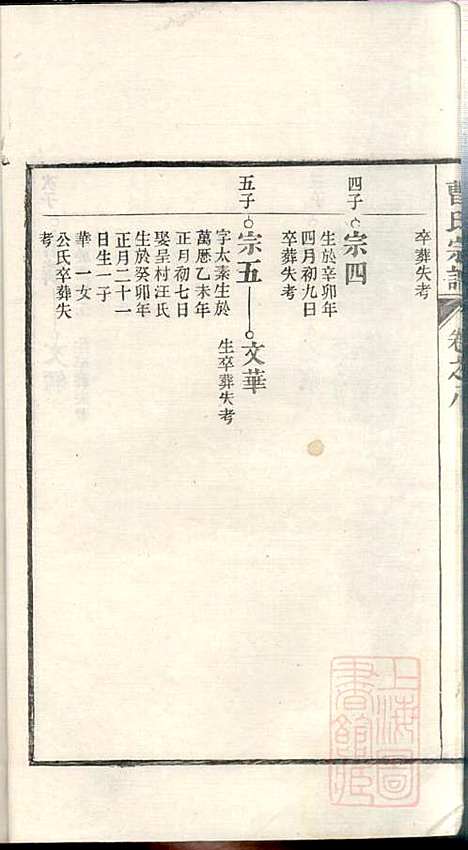 曹氏宗譜
卷之八
卒葬失考
四子
宗四
生於辛卯年
四月初九日
卒葬失考
五子
宗五
文華
生卒葬失考
字太素生於
萬曆乙未年
正月初七日
娶呈村汪氏
生於癸卯年
正月二十一
日生一子
華 一女
公氏卒葬失
考
上海圖
書館藏